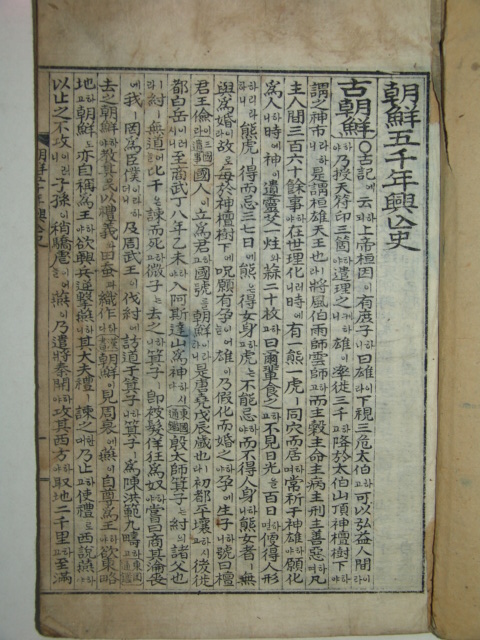 朝鮮五千年興亾史
古朝鮮○古記에云하되上帝桓因이有庶子하니曰雄이라下視三危太伯하고可以弘益人間이라
하야乃授天符印三箇하야遣理之한대雄이率徒三千하고降於太伯山頂神檀樹下하니
謂之神市라하니是謂桓雄天王也라將風伯雨師雲師하고而主穀主命主病主刑主善惡하며凡
主人間三百六十餘事하야在世理化러니時에有一熊一虎ㅣ同穴而居하며常祈于神雄하야願化
爲人하니時에神이遺靈艾一炷와蒜二十枚하고曰爾輩食之하고不見日光을百日하면便得人形
하리라하니熊虎ㅣ得而忌三七日에熊은得女身하고虎는不能忌하야而不得人身하니熊女者ㅣ無
與爲婚이라故로每於神檀樹下에呪願有孕이어늘雄이乃假化而婚之하야孕에生子하니號曰檀
君王儉이라國人이立爲君하고國號를朝鮮이라하니是唐堯戊辰歲也라初都平壤하고後徙
都白岳이러니至商武丁八年乙未하야入阿斯達山爲神하시니라殷太師箕子는紂의諸父也
라紂ㅣ無道어늘比干은諫而死하고微子는去之하고箕子는卽被髮佯狂爲奴하야嘗曰商其淪喪
에我ㅣ罔爲臣僕이라하니라及周武王이伐紂에訪道于箕子하니箕子ㅣ爲陳洪範九疇하고
去之朝鮮하야敎其民以禮義와田蚕織作하다朝鮮이見周衰에燕이自尊爲王하야欲東略
地하고朝鮮도亦自稱爲王하야欲興兵逆擊燕하니其大夫禮ㅣ諫之어늘乃止하고使禮로西說燕하야
以止之不攻이러니子孫이稍驕虐이어늘燕이乃遣將秦開하야攻其西方하야取地二千里하고至滿
朝鮮五千年興亾史